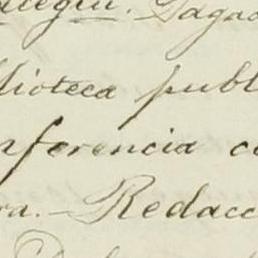 alegui. Sagao
lioteca publ
nferencia co
ra. — Redacc